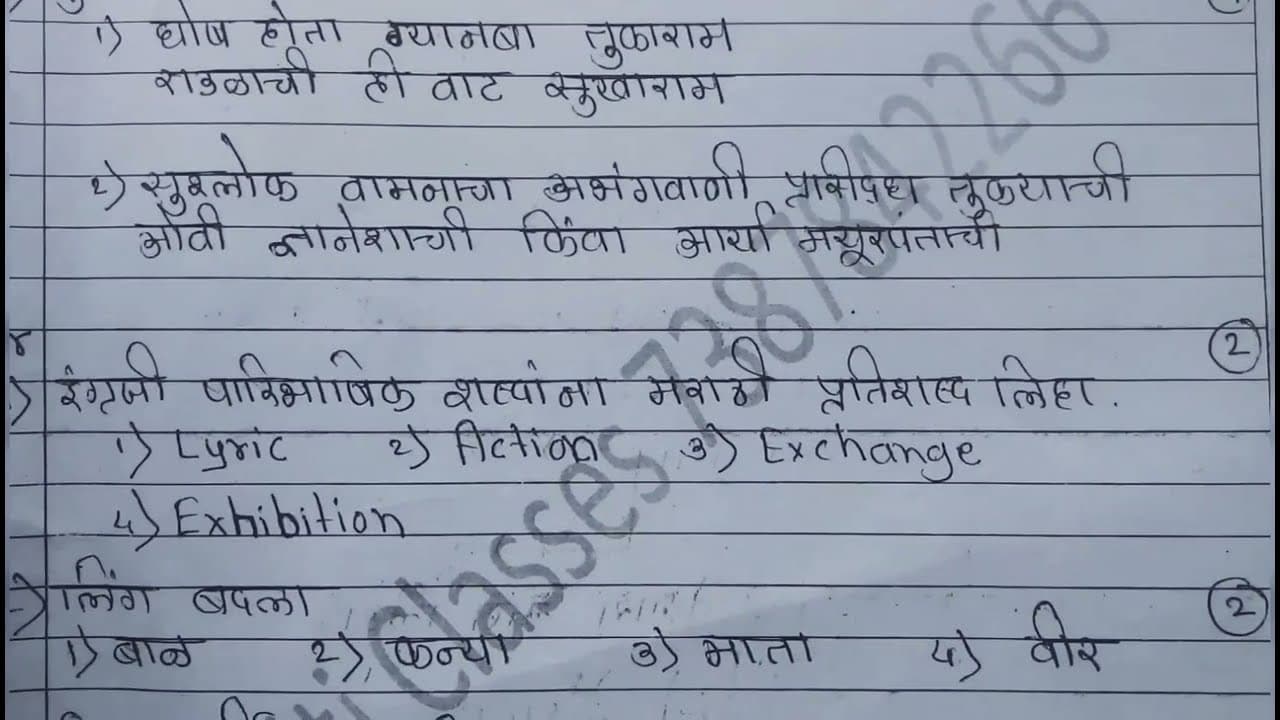 १) घोष होता ग्यानबा तुकाराम
राउळाची ही वाट सुखाराम
२) सुश्लोक वामनाचा अभंगवाणी प्रसिद्ध तुकयाची
ओवी ज्ञानेशाची किंवा आर्या मयूरपंताची
४
2
इंग्रजी पारिभाषिक शब्दांना मराठी प्रतिशब्द लिहा.
१) Lyric २) Action ३) Exchange
४) Exhibition
लिंग बदला 2
१) बाळ २) कन्या ३) माता ४) वीर
Classes